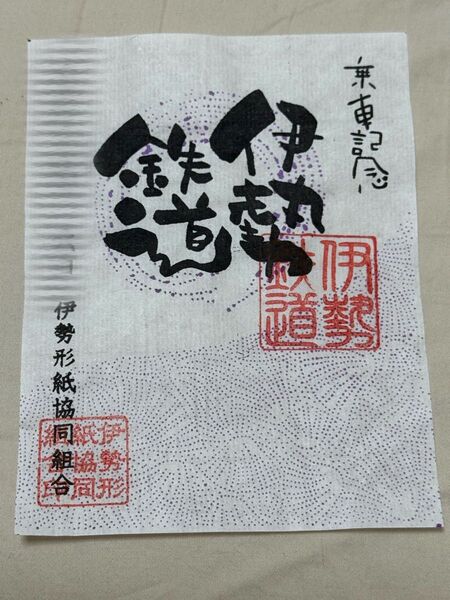 乗車記念
伊勢
鉄道
伊勢
鉄道
伊勢形紙協同組合
伊勢形
紙協同